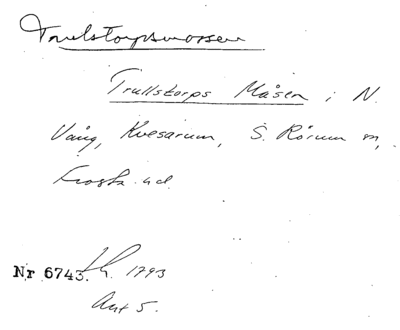 Trulstorpsmossen
Trullstorps Måsen i N.
Vång, Kvesarum, S. Rörum m,
Frosta hd.
Nr 6743. 1793
Akt 5.